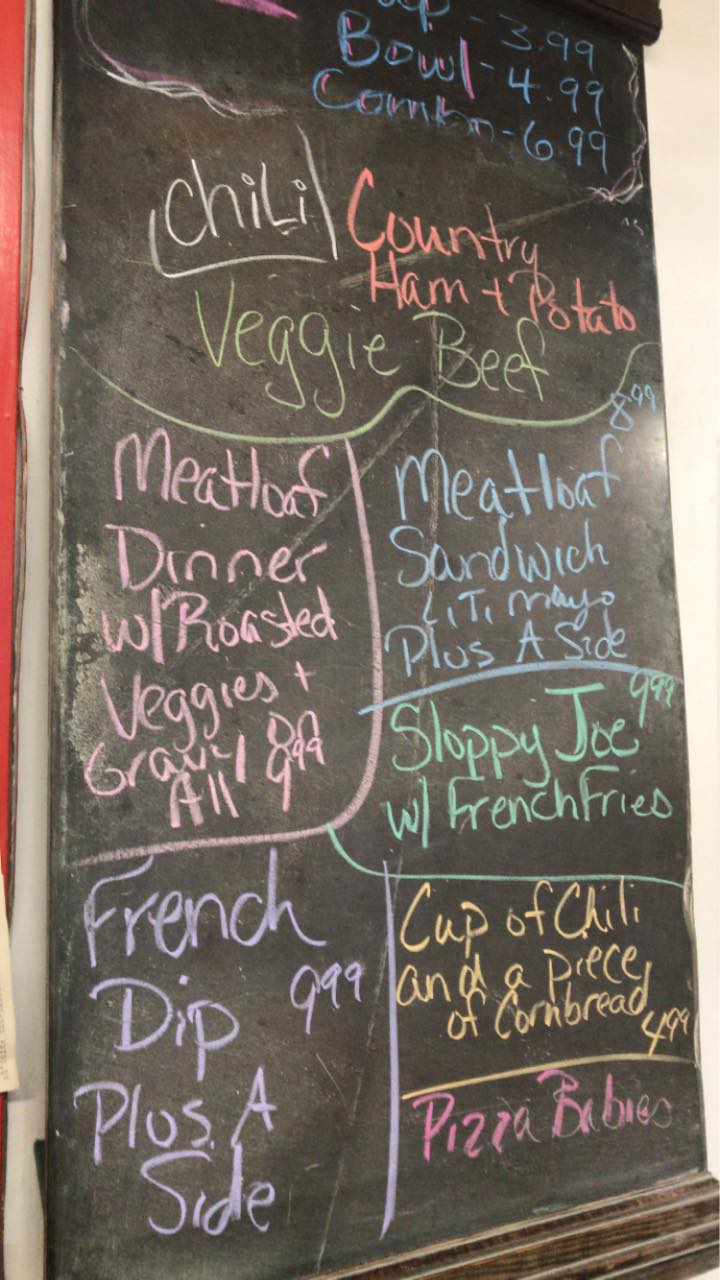 Cup - 3.99
Bowl - 4.99
Combo - 6.99
Chili
Country
Ham + Potato
Veggie Beef
Meatloaf
Dinner
w/ Roasted
Veggies +
Gravy on
All 9.99
8.99
Meatloaf
Sandwich
L,T, mayo
Plus A Side
9.99
Sloppy Joe
w/ French Fries
French
Dip 9.99
Plus A
Side
Cup of Chili
and a piece
of Cornbread
4.99
Pizza Babies